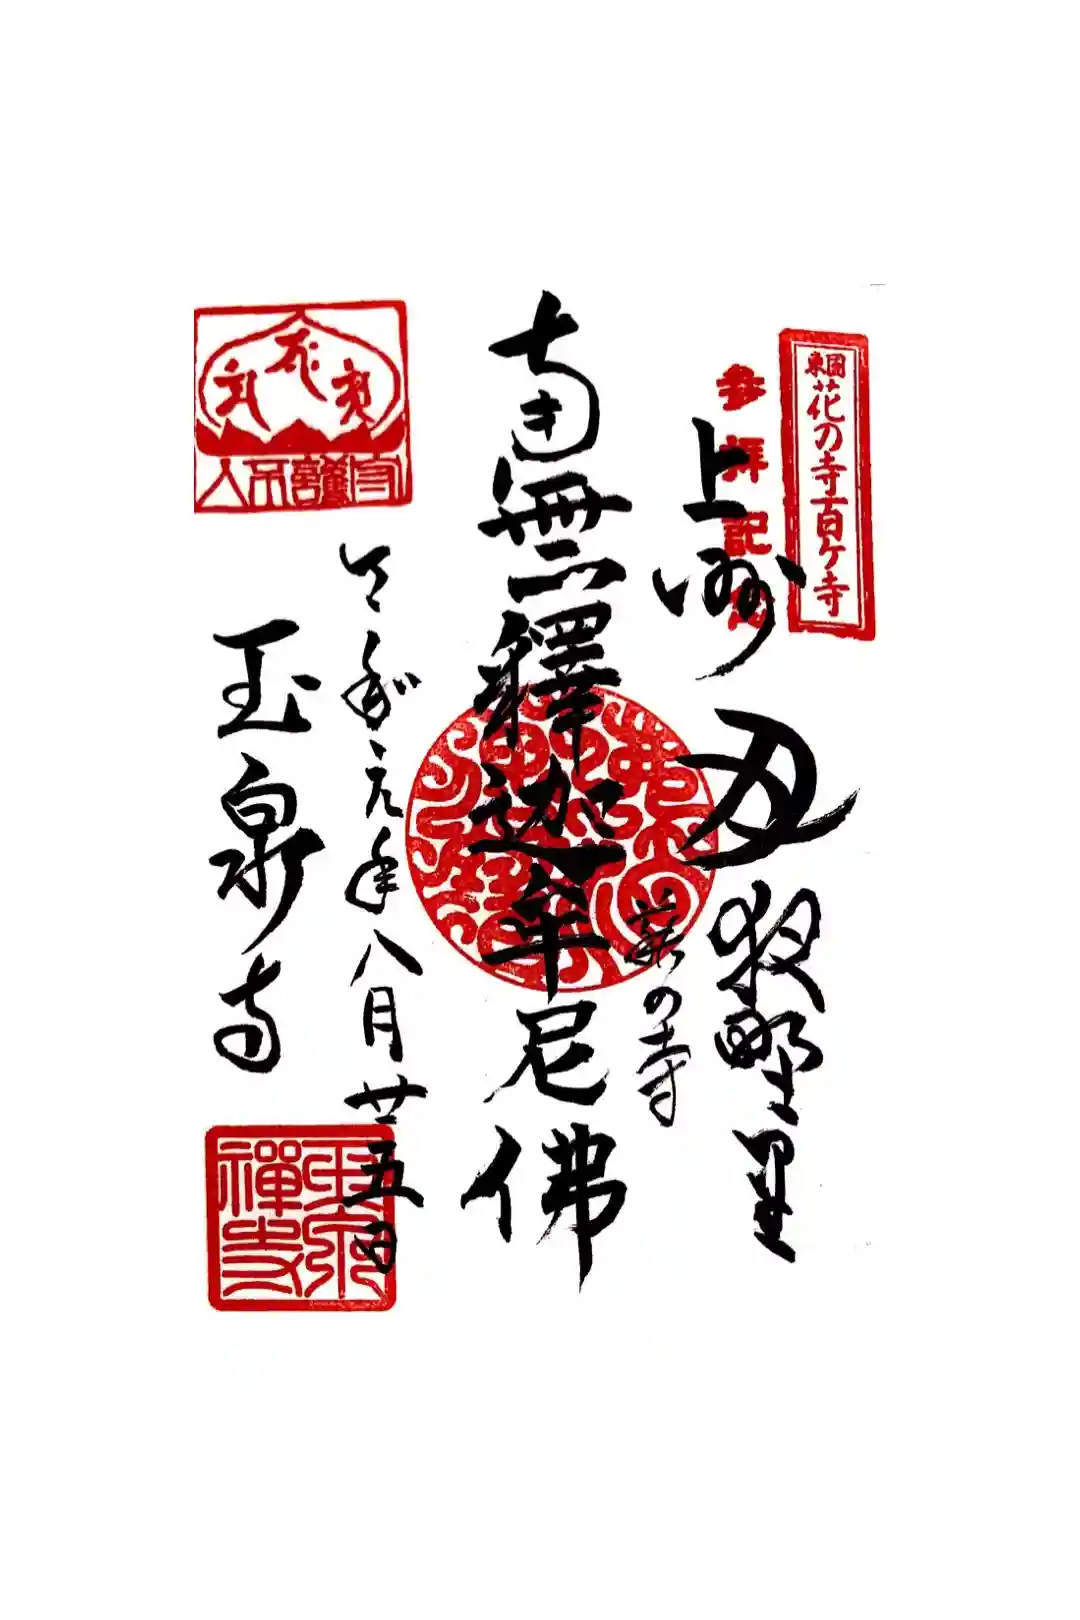 東國花の寺百ヶ寺
参拝記念
上州
月夜野里
の寺
南無釋迦牟尼佛
令和元年八月廿五日
玉泉寺
守護不入
玉泉禪寺